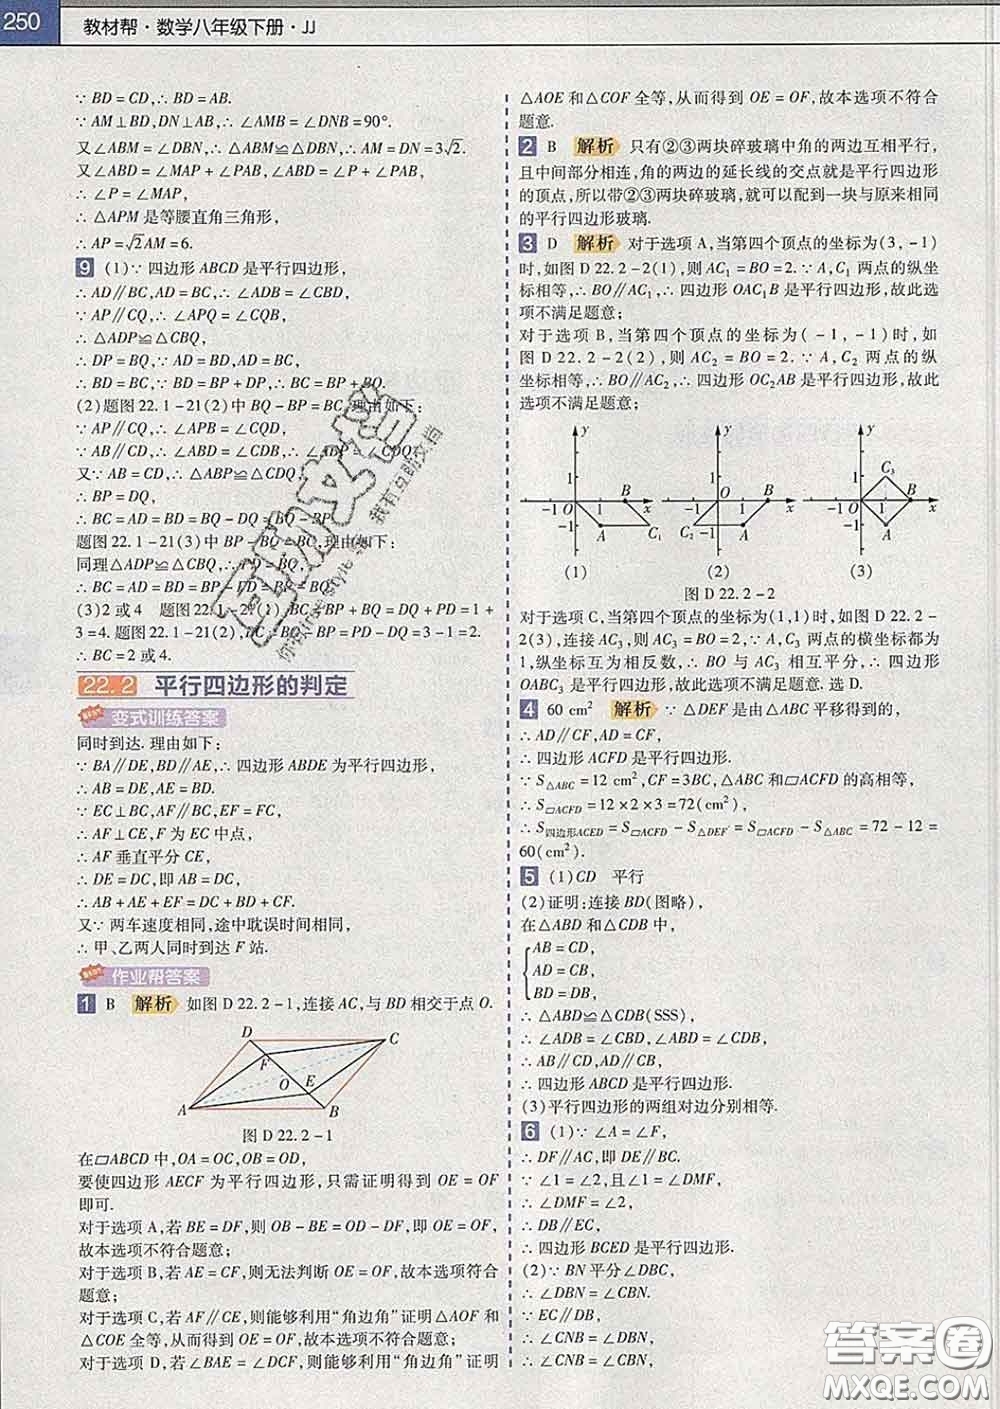 250
教材帮·数学八年级下册·JJ
∵ BD = CD,∴ BD = AB.
∵ AM⊥BD,DN⊥AB,∴ ∠AMB = ∠DNB = 90°.
又∠ABM = ∠DBN,∴ △ABM≌△DBN,∴ AM = DN = 3√2.
又∠ABD = ∠MAP + ∠PAB,∠ABD = ∠P + ∠PAB,
∴ ∠P = ∠MAP,
∴ △APM 是等腰直角三角形,
∴ AP = √2AM = 6.
9 (1)∵ 四边形 ABCD 是平行四边形,
∴ AD∥BC,AD = BC,∴ ∠ADB = ∠CBD,
∵ AP∥CQ,∴ ∠APQ = ∠CQB,
∴ △ADP≌△CBQ,
∴ DP = BQ,∵ AD = BD,AD = BC,
∴ BD = BC,∵ BD = BP + DP,∴ BC = BP + BQ.
(2)题图 22.1-21(2)中 BQ - BP = BC,理由如下:
∵ AP∥CQ,∴ ∠APB = ∠CQD,
∵ AB∥CD,∴ ∠ABP = ∠CDQ,
又∵ AB = CD,∴ △ABP≌△CDQ,
∴ BP = DQ,
∴ BC = AD = BD = BQ - DQ = BQ - BP.
题图 22.1-21(3)中 BP - BQ = BC,理由如下:
同理△ADP≌△CBQ,∴ PD = BQ,
∴ BC = AD = BD = BP - PD = BP - BQ.
(3)2 或 4 题图 22.1-21(1),BC = BP + BQ = DQ + PD = 1 +
3 = 4.题图 22.1-21(2),BC = BQ - BP = PD - DQ = 3 - 1 = 2.
∴ BC = 2 或 4.
22.2 平行四边形的判定
变式训练答案
同时到达.理由如下:
∵ BA∥DE,BD∥AE,∴ 四边形 ABDE 为平行四边形,
∴ AB = DE,AE = BD.
∵ EC⊥BC,AF∥BC,EF = FC,
∴ AF⊥CE,F 为 EC 中点,
∴ AF 垂直平分 CE,
∴ DE = DC,即 AB = DC,
∴ AB + AE + EF = DC + BD + CF.
又∵ 两车速度相同,途中耽误时间相同,
∴ 甲、乙两人同时到达 F 站.
作业帮答案
1 B 解析 如图 D 22.2-1,连接 AC,与 BD 相交于点 O.
D C F O E A B
图 D 22.2-1
在▱ABCD 中,OA = OC,OB = OD,
要使四边形 AECF 为平行四边形,只需证明得到 OE = OF
即可.
对于选项 A,若 BE = DF,则 OB - BE = OD - DF,即 OE = OF,
故本选项不符合题意;
对于选项 B,若 AE = CF,则无法判断 OE = OF,故本选项符合
题意;
对于选项 C,若 AF∥CE,则能够利用“角边角”证明△AOF 和
△COE 全等,从而得到 OE = OF,故本选项不符合题意;
对于选项 D,若∠BAE = ∠DCF,则能够利用“角边角”证明
△AOE 和△COF 全等,从而得到 OE = OF,故本选项不符合
题意.
2 B 解析 只有②③两块碎玻璃中角的两边互相平行,
且中间部分相连,角的两边的延长线的交点就是平行四边形
的顶点,所以带②③两块碎玻璃,就可以配到一块与原来相同
的平行四边形玻璃.
3 D 解析 对于选项 A,当第四个顶点的坐标为(3,-1)
时,如图 D 22.2-2(1),则 AC₁ = BO = 2.∵ A,C₁ 两点的纵坐
标相等,∴ BO∥AC₁,∴ 四边形 OAC₁B 是平行四边形,故此选
项不满足题意;
对于选项 B,当第四个顶点的坐标为(-1,-1)时,如
图 D 22.2-2(2),则 AC₂ = BO = 2.∵ A,C₂ 两点的纵
坐标相等,∴ BO∥AC₂,∴ 四边形 OC₂AB 是平行四边形,故此
选项不满足题意;
y 1 B -1 O 1 x -1 A C₁
y 1 B -1 O 1 x C₂ -1 A
y 1 C₃ B -1 O x -1 A
(1) (2) (3)
图 D 22.2-2
对于选项 C,当第四个顶点的坐标为(1,1)时,如图 D 22.2-
2(3),连接 AC₃,则 AC₃ = BO = 2,∵ A,C₃ 两点的横坐标都为
1,纵坐标互为相反数,∴ BO 与 AC₃ 相互平分,∴ 四边形
OABC₃ 是平行四边形,故此选项不满足题意.选 D.
4 60 cm² 解析 ∵ △DEF 是由△ABC 平移得到的,
∴ AD∥CF,AD = CF,
∴ 四边形 ACFD 是平行四边形.
∵ S△ABC = 12 cm²,CF = 3BC,△ABC 和▱ACFD 的高相等,
∴ S▱ACFD = 12 × 2 × 3 = 72(cm²),
∴ S四边形ACED = S▱ACFD - S△DEF = S▱ACFD - S△ABC = 72 - 12 =
60(cm²).
5 (1)CD 平行
(2)证明:连接 BD(图略),
在△ABD 和△CDB 中,
AB = CD,
AD = CB,
BD = DB,
∴ △ABD≌△CDB(SSS),
∴ ∠ADB = ∠CBD,∠ABD = ∠CDB,
∴ AB∥CD,AD∥CB,
∴ 四边形 ABCD 是平行四边形.
(3)平行四边形的两组对边分别相等.
6 (1)∵ ∠A = ∠F,
∴ DF∥AC,即 DE∥BC.
∵ ∠1 = ∠2,且∠1 = ∠DMF,
∴ ∠DMF = ∠2,
∴ DB∥EC,
∴ 四边形 BCED 是平行四边形.
(2)∵ BN 平分∠DBC,
∴ ∠DBN = ∠CBN.
∵ EC∥DB,
∴ ∠CNB = ∠DBN,
∴ ∠CNB = ∠CBN,
答案圈
MXQE.COM